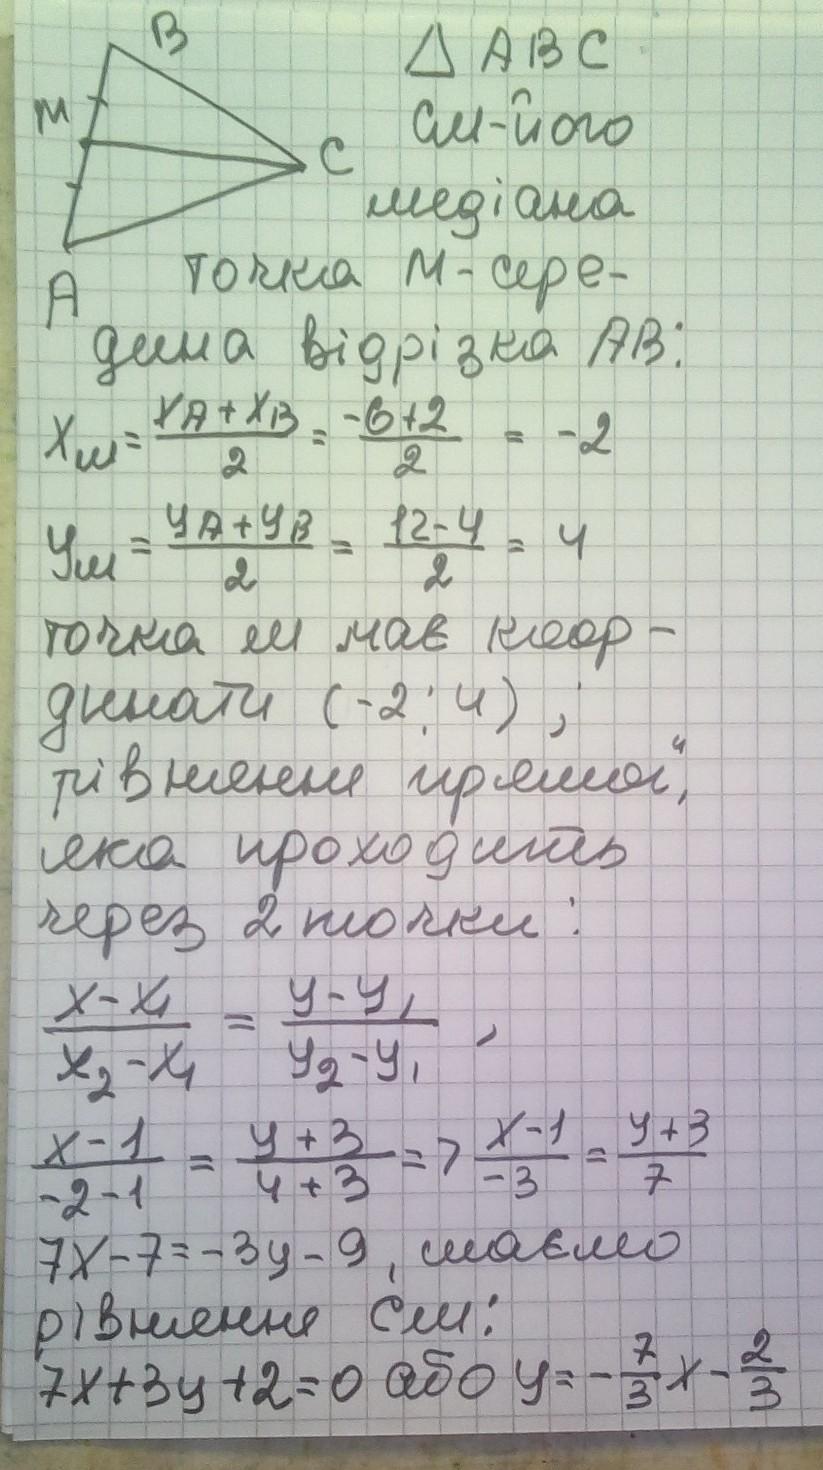 B
M
C
A
△ ABC
СМ-його
медіана
точка М-сере-
дина відрізка АВ:
x_M = (x_A + x_B)/2 = (-6+2)/2 = -2
y_M = (y_A + y_B)/2 = (12-4)/2 = 4
точка М має коор-
динати (-2; 4) ,
рівняння прямої,
яка проходить
через 2 точки:
(x-x₁)/(x₂-x₁) = (y-y₁)/(y₂-y₁) ,
(x-1)/(-2-1) = (y+3)/(4+3) => (x-1)/(-3) = (y+3)/7
7x-7=-3y-9, маємо
рівняння СМ:
7x+3y+2=0 або y=-7/3x-2/3